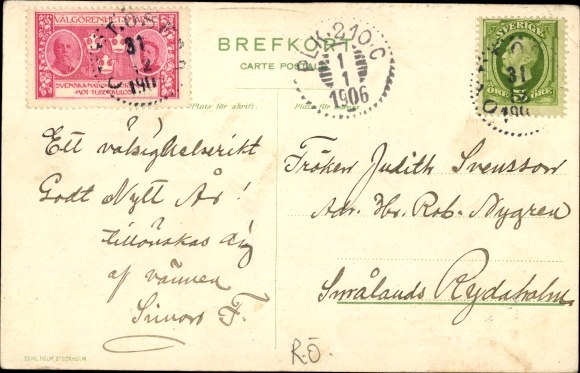 VÄLGÖRENHETSMÄRKE
SVENSKA NATIONAL
MOT TUBERKULOS
31
12
190
BREFKORT
CARTE POSTALE
P.K.P. 210 C
1
1
1906
SVERIGE
5
ÖRE ÖRE
31
12
190
Plats för skrift.
Plats för
Ett välsignelserikt
Godt Nytt År!
tillönskas dig
af vännen
F.
Fröken Judith Svensson
Adr. Hr. Rob. Nygren
Smålands Rydaholm
R.Ö.
HOLM, STOCKHOLM